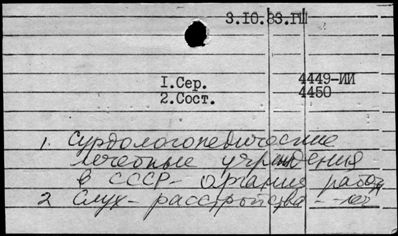 3.10.83.ГШ
1.Сер. 4449-ИИ
2.Сост. 4450
1. Сурдологопедические
лечебные учреждения
в СССР - организ. работы
2 Слух - расстройства - лет